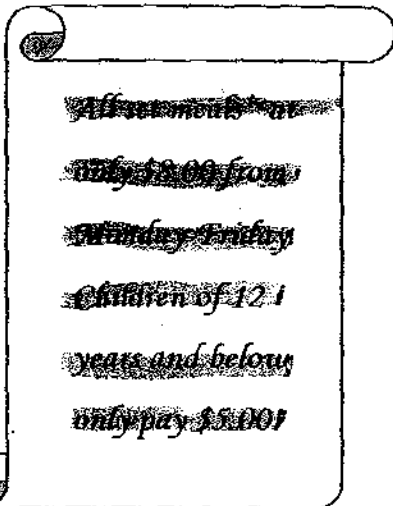 All set meals* at
only $8.00 from
Monday-Friday
Children of 12
years and below
only pay $5.00!